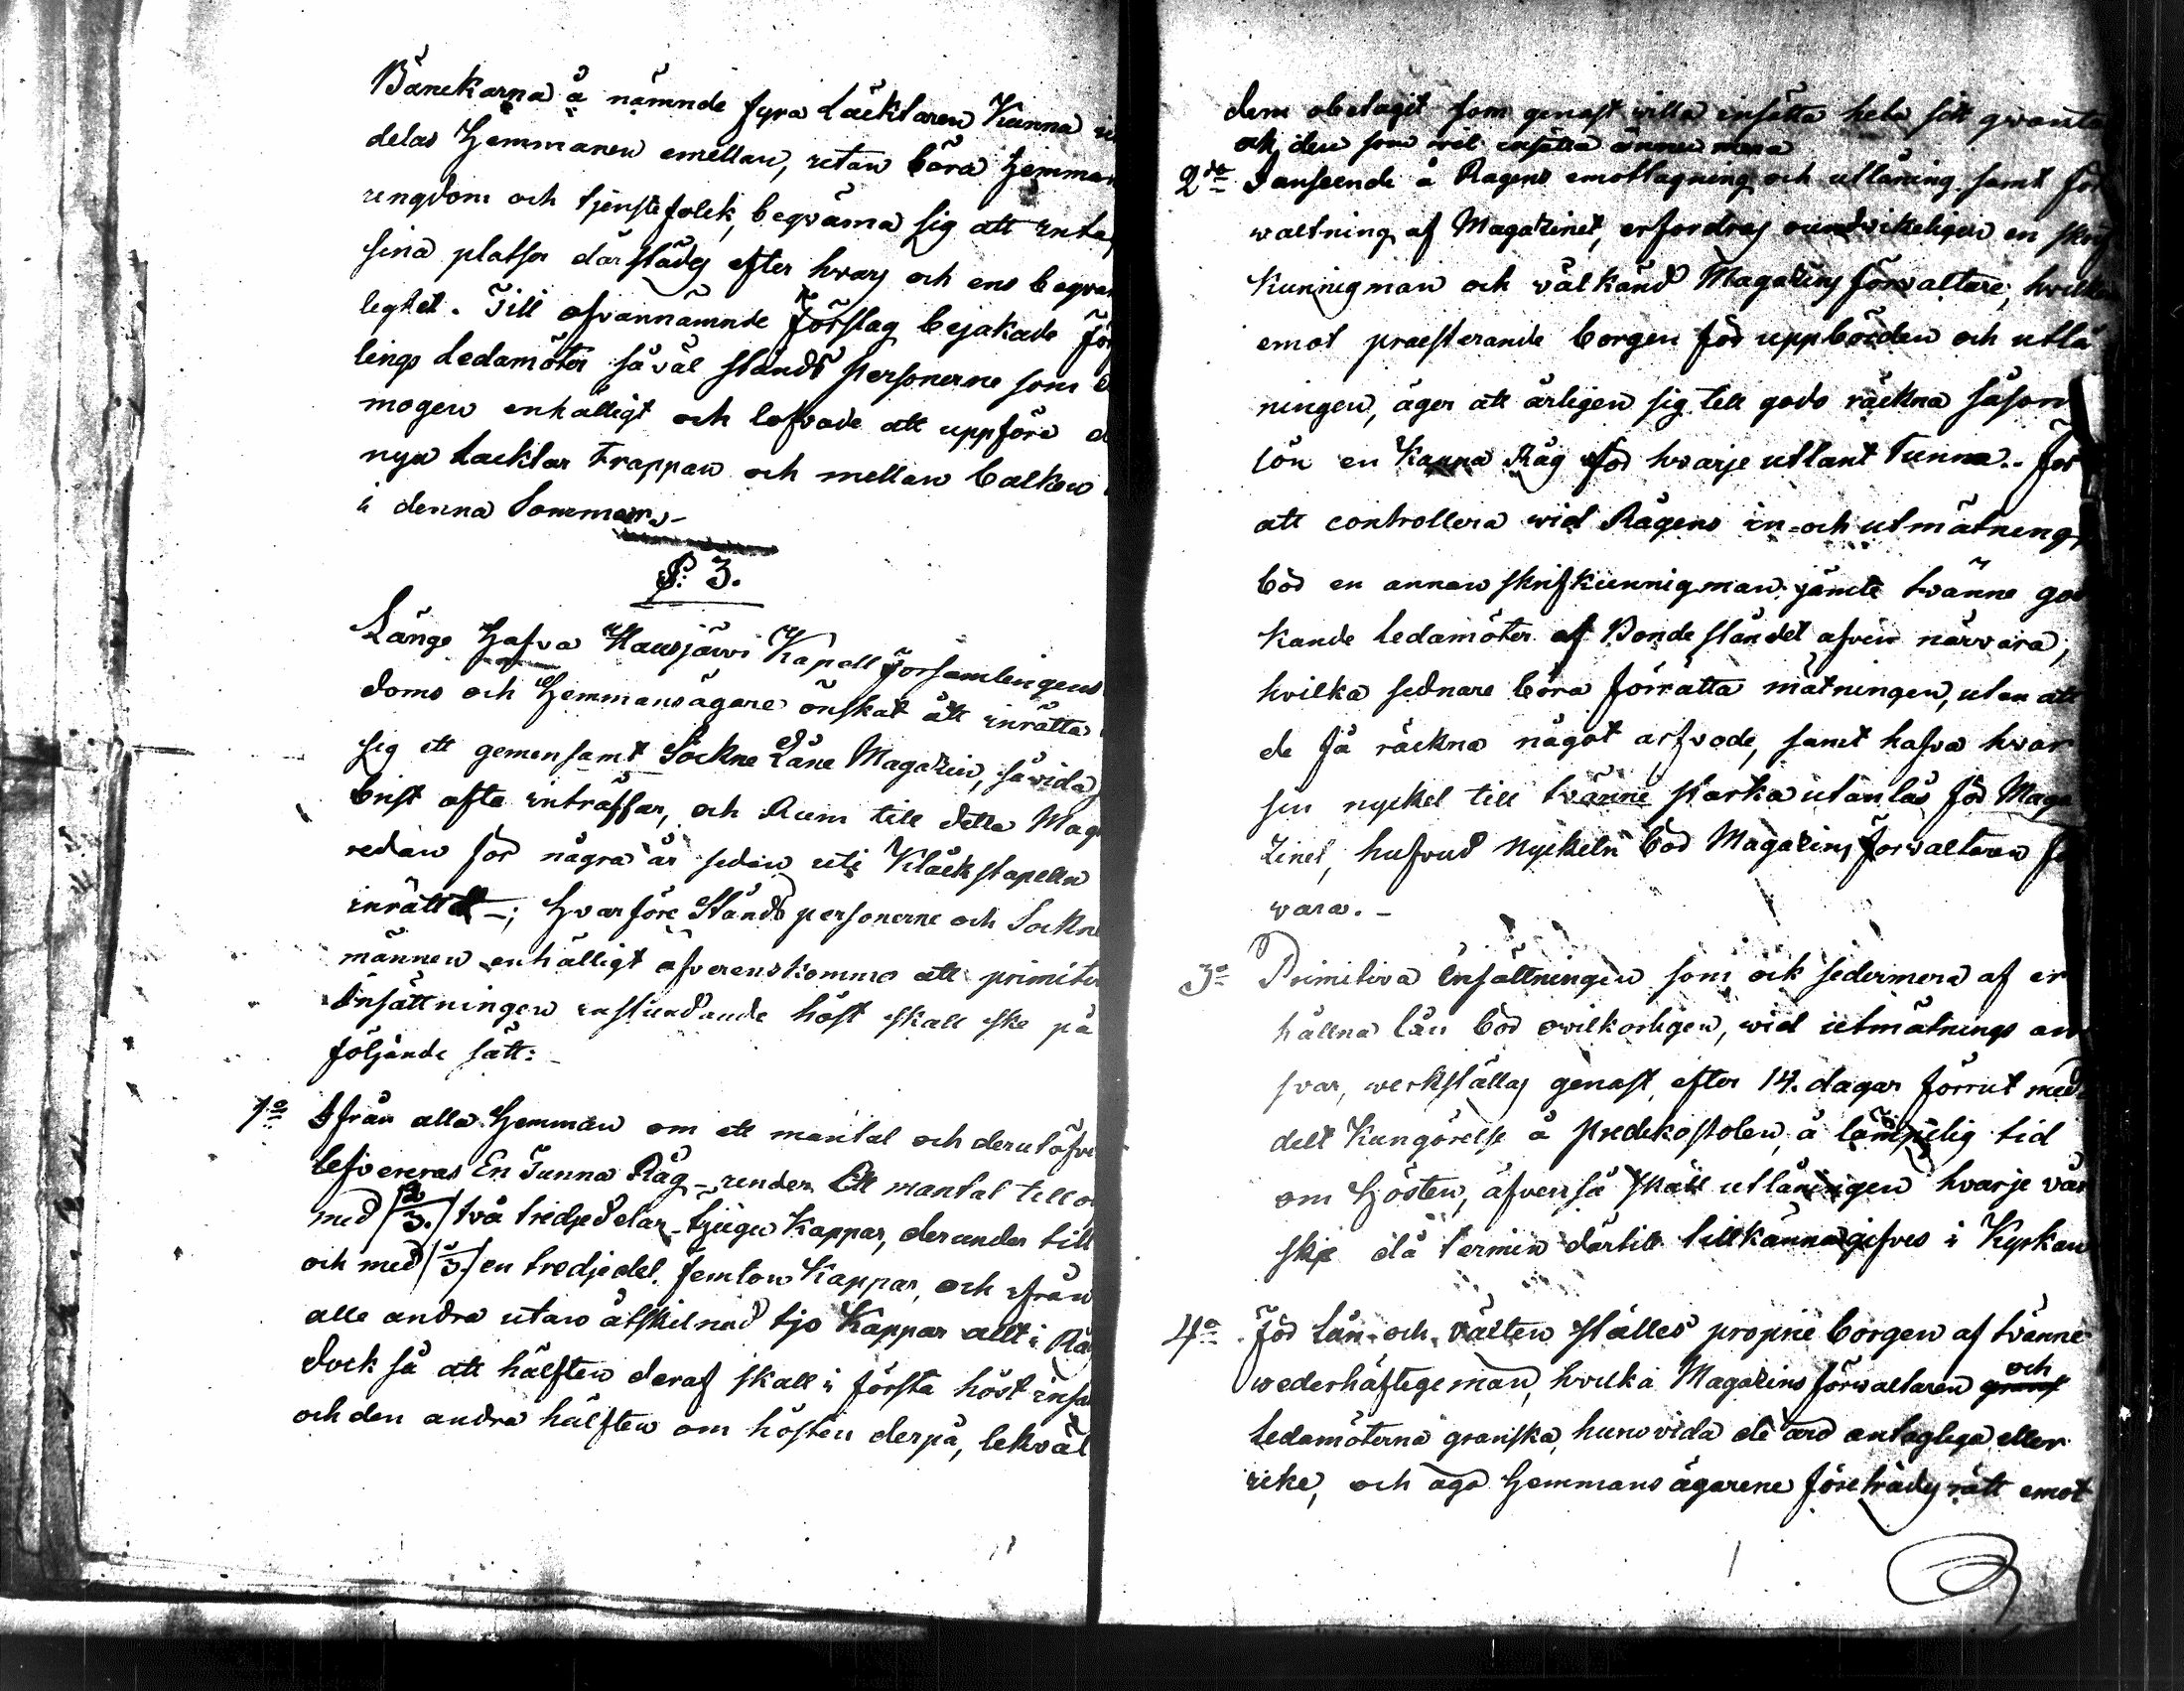 Bänckarna å nämnde fyra Läcktaren Kunna
delas Hemmanen emellan, utan böra Hemman
ungdom och tjenstefolck, beqväma sig att intag
sina platser därstädes efter hvars och ens beqväm
lighet. Till ofvannämnde förslag bejakade För
lings Ledamöter såväl Stånds personerne som
mogen enhälligt och lofvade att uppföra
nya Lacktar Trappan och mellan balken
i denna Sommar.-
§: 3.
Länge Hafva Hausjärvi Kapell Församlingens
doms och Hemmansägare önskat att inrätta
sig ett gemensamt Sockne Låne Magazin, såvida
brist ofta inträffar, och Rum till detta Mag
redan för några år sedan uti Kläckstapeln
inrättat -; Hvarföre Ståndspersonerne och Sockne
männen enhälligt öfverenskommo att primitiv
Insättningen instundande höst skall ske på
följande sätt:-
1o Ifrån alla Hemman om ett mantal och derutöfver
lefvereras En Tunna Råg - under Ett mantal till o
med /2/3./ två tredjedelar - tjugu Kappar, derunder till
och med /1/3/ en tredjedel. femton Kappar, och ifrån
alle andra utan åtskilnad tjo Kappar allt i Råg
dock så att hälften deraf skall i första höst insä
och den andra hälften om hösten derpå, lekväl
dem obetagit som genast villa insätta hela sitt qvanta
och den som vil insätta ännu mera
2do I anseende å Rågens emottagning och utlåning samt för
waltning af Magazinet, erfordras oundvikeligen en skrif
Kunnig man och välkänd Magazins förvaltare, hvilken
emot præsterande borgen för uppbörden och utlå
ningen, äger att årligen sig till godo räckna såsom
lön en Kanna Råg för hvarje utlant Tunna.. För
att controllera wid Rågens in- och utmätning,
bör en annan skrifkunnig man jämte tvänne god
kande Ledamöter af Bonde ståndet äfven närvara,
hvilka sednare böra förrätta mätningen, utan att
de få räckna något arfvode, samt hafva hvar
sin nyckel till tvänne starka utanlås för Maga
zinet, hufvud Nyckeln bör Magazins Förvaltaren för
vara.-
3o Primitiva Insättningen som ock sedermera af er
hållna lån bör ovilkorligen, wid utmätnings an
svar, werkställas genast, efter 14. dagar förrut med
delt Kungörelse å Predikostolen, å lämpelig tid
om Hösten, äfvenså skall utlåningen hvarje vår
ske då termin därtill tillkännagifves i Kyrkan
4o För Lån och växten ställes proprie borgen af tvänne
wederhäftige män, hvilka Magazins förvaltaren och
Ledamöterna granska, huruvida de äro antaglige eller
icke, och äga Hemmansägarene företrädes rätt emot